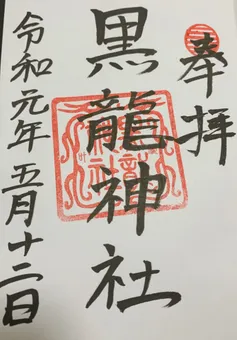 奉拝
黒龍神社
令和元年五月十二日